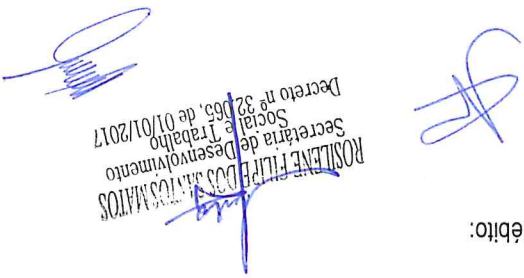 ébito:
ROSILENE FILIPE DOS SANTOS MATOS
Secretária de Desenvolvimento
Social e Trabalho
Decreto nº 32.065, de 01/01/2017